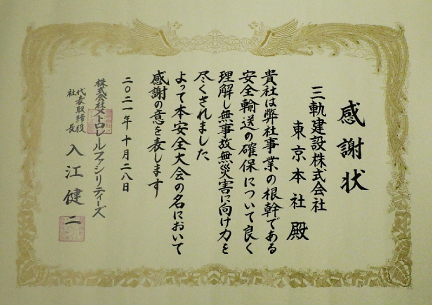 感謝状
三軌建設株式会社
東京本社 殿
貴社は弊社事業の根幹である
安全輸送の確保について良く
理解し無事故無災害に向け力を
尽くされました
よって本安全大会の名において
感謝の意を表します
二〇二一年十月二八日
株式会社メトロレールファシリティーズ
代表取締役
社長
入江健二